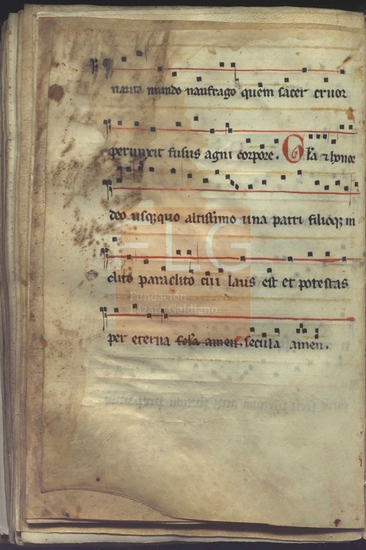 nauta mundo naufrago quem sacer cruor
perunxit fusus agni corpore. Gl'a et hono2
deo usquequo altissimo una patri filioque in
clito paraclito cui laus est et potestas
per eterna secula amen.
FLG
Fundación
Lázaro Galdiano